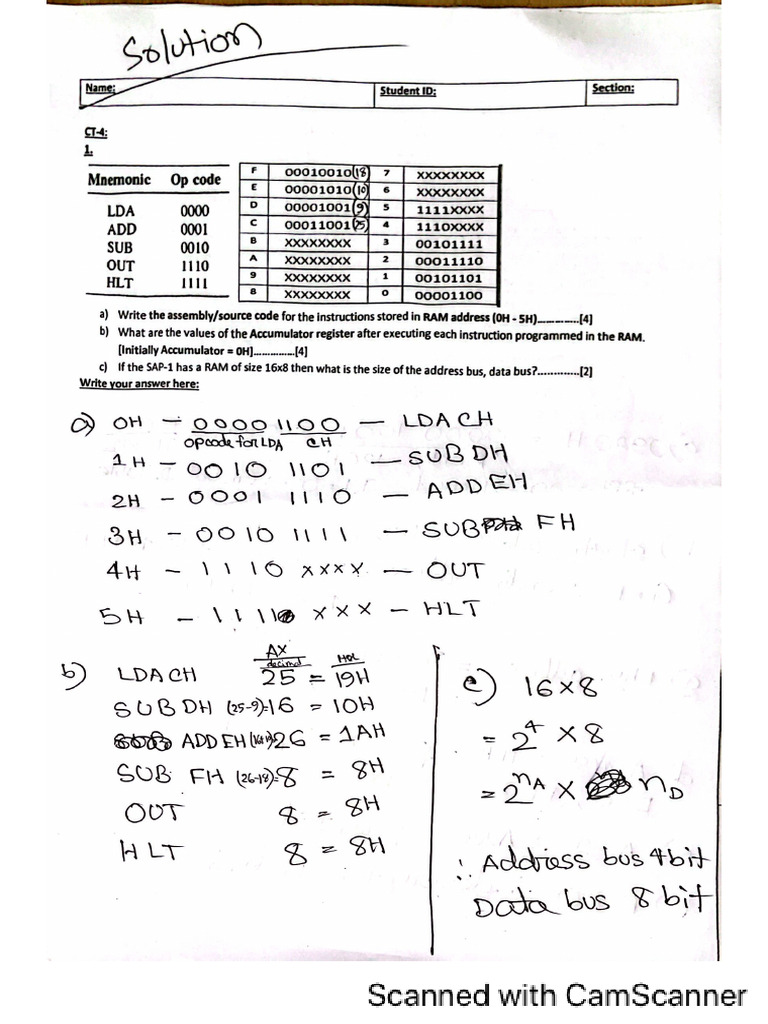 Solution
Name: Student ID: Section:
CT-4:
1.
Mnemonic Op code
LDA 0000
ADD 0001
SUB 0010
OUT 1110
HLT 1111
F 00010010 (18) 7 XXXXXXXX
E 00001010 (10) 6 XXXXXXXX
D 00001001 (9) 5 1111XXXX
C 00011001 (25) 4 1110XXXX
B XXXXXXXX 3 00101111
A XXXXXXXX 2 00011110
9 XXXXXXXX 1 00101101
8 XXXXXXXX 0 00001100
a) Write the assembly/source code for the instructions stored in RAM address (0H - 5H)..............[4]
b) What are the values of the Accumulator register after executing each instruction programmed in the RAM.
[Initially Accumulator = 0H]..............[4]
c) If the SAP-1 has a RAM of size 16x8 then what is the size of the address bus, data bus?.............[2]
Write your answer here:
a) 0H - 0000 1100 - LDA CH
opcode for LDA CH
1H - 0010 1101 - SUB DH
2H - 0001 1110 - ADD EH
3H - 0010 1111 - SUB FH
4H - 1110 xxxx - OUT
5H - 1111 xxx - HLT
b) AX
decimal Hex
LDA CH 25 = 19H
SUB DH (25-9)=16 = 10H
ADD EH 26 = 1AH
SUB FH (26-18)=8 = 8H
OUT 8 = 8H
HLT 8 = 8H
c) 16×8
= 2^4 × 8
= 2^nA × nD
∴ Address bus 4bit
Data bus 8 bit
Scanned with CamScanner